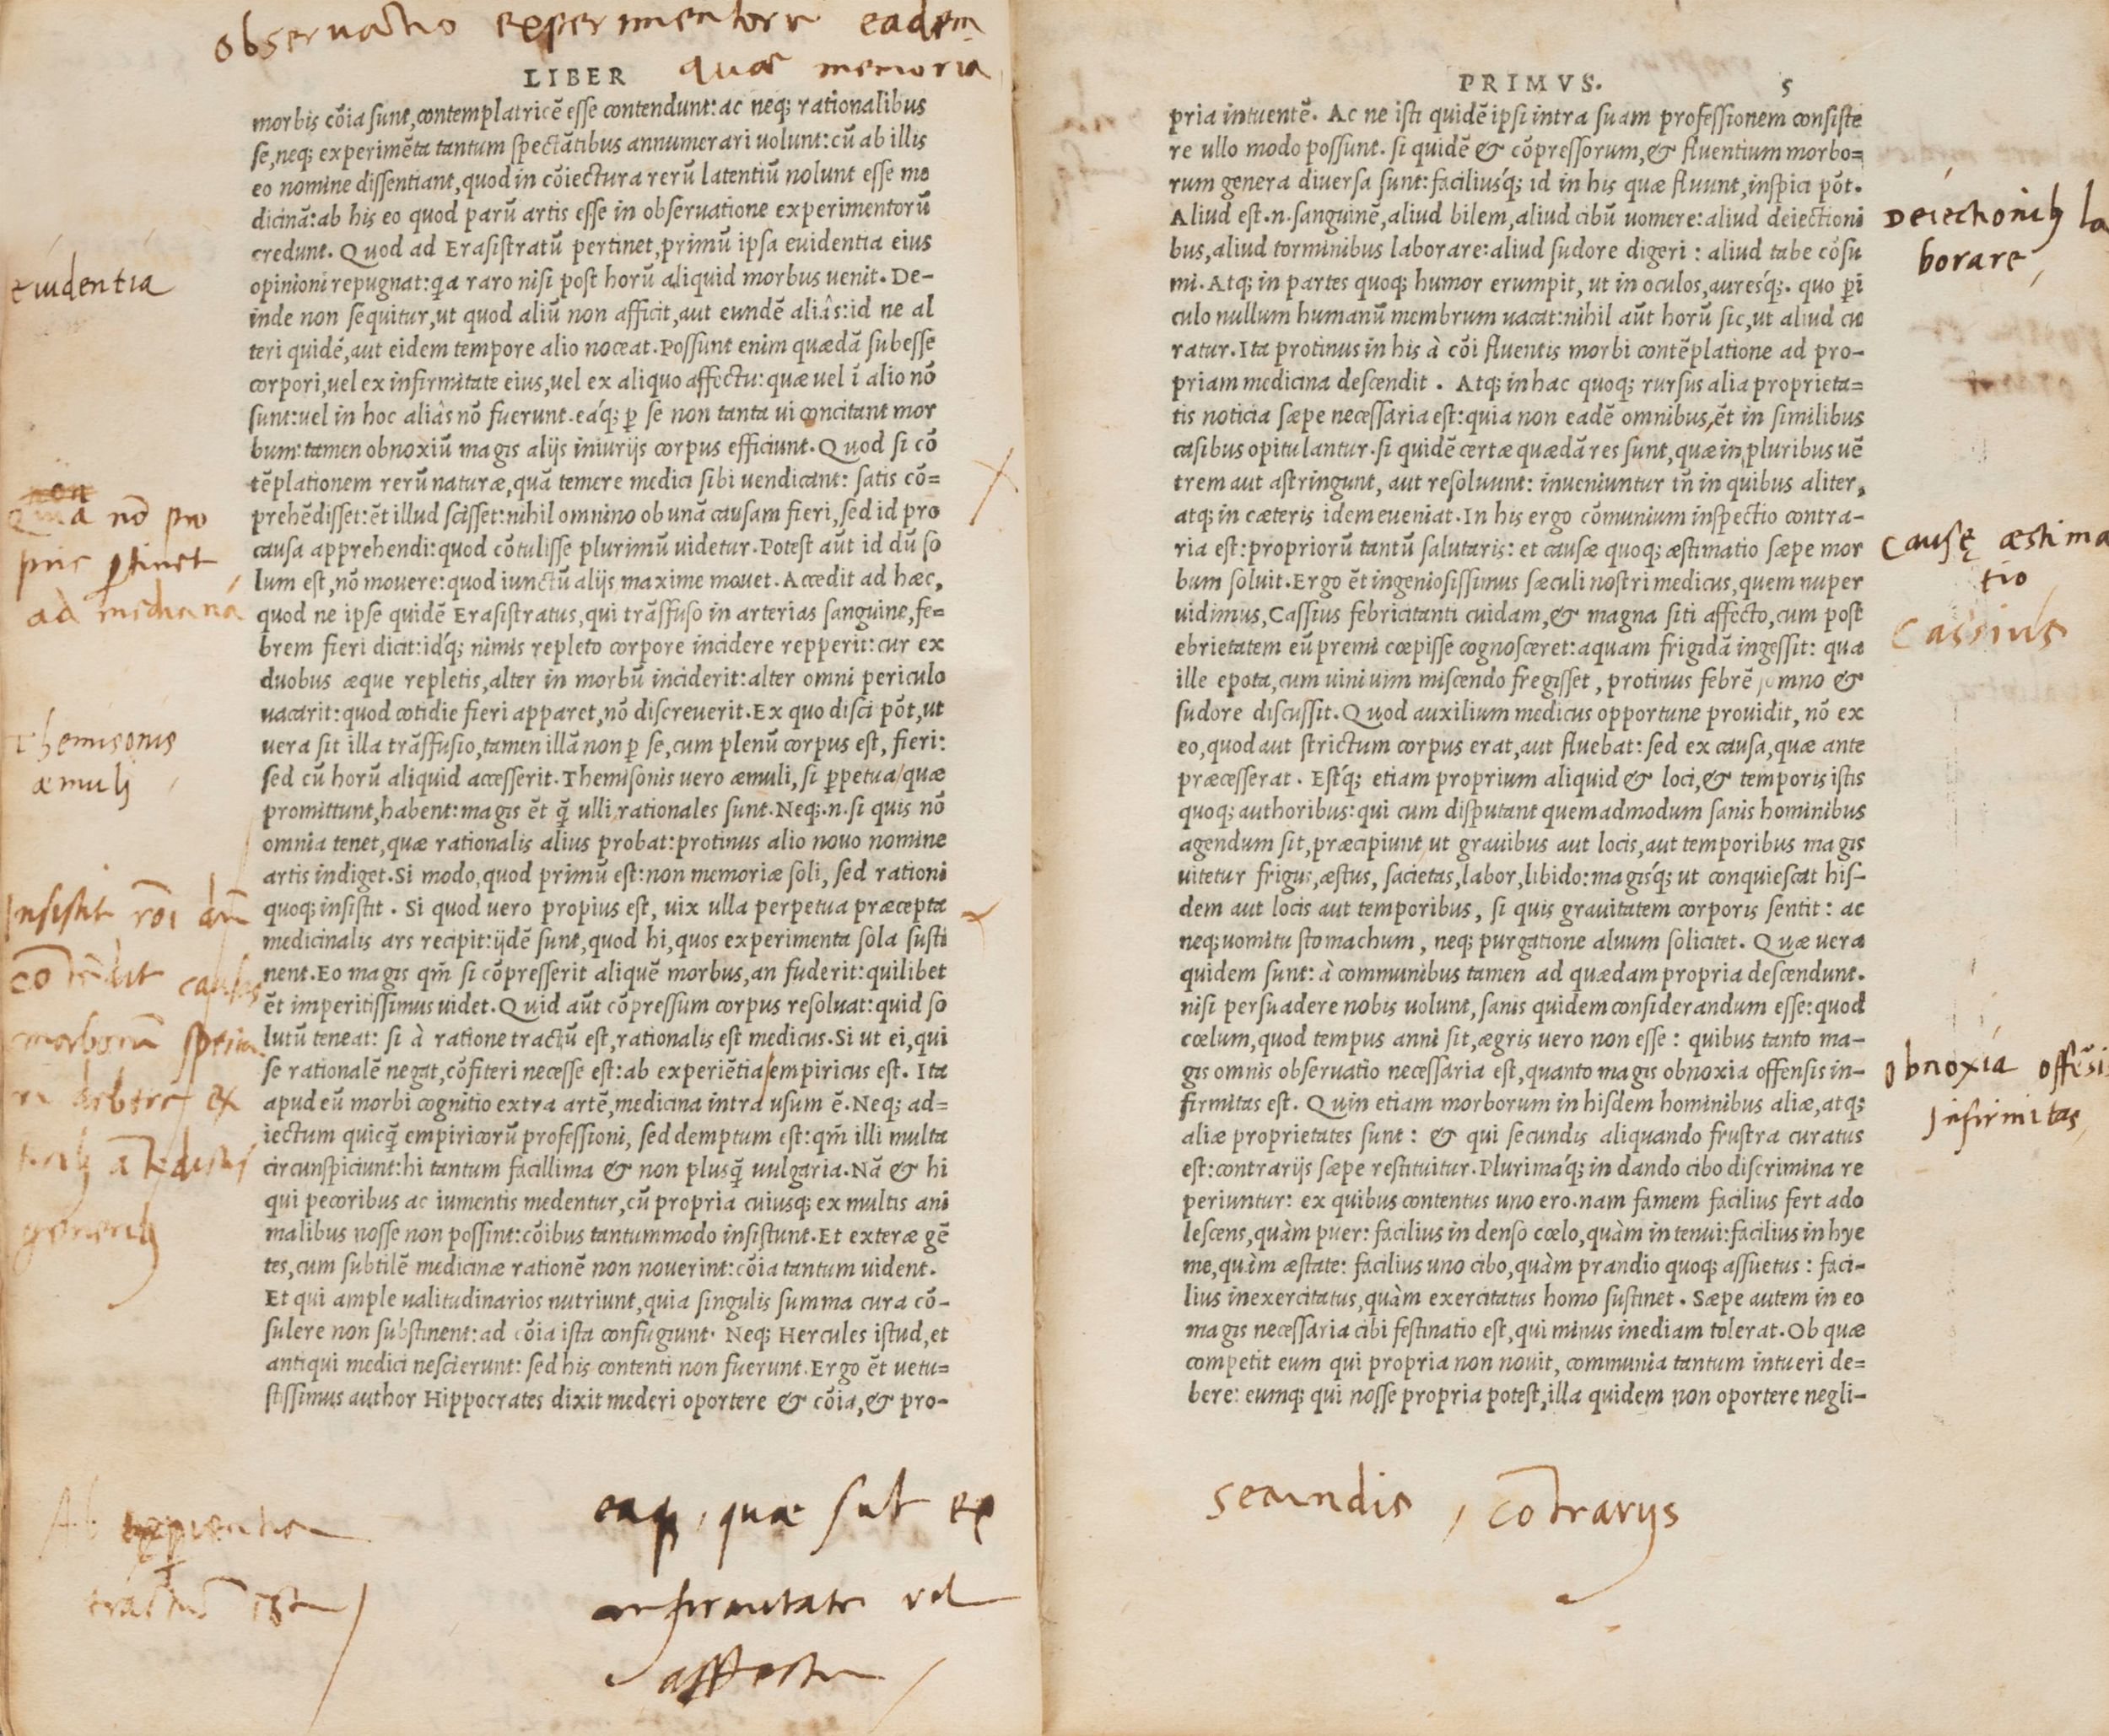 obseruatio experimentoru eadem
quae memoria
LIBER
morbis cõia sunt,contemplatricẽ esse contendunt: ac neq; rationalibus
se,neq; experimẽta tantum spectãtibus annumerari uolunt: cũ ab illis
eo nomine dissentiant,quod in cõiectura rerũ latentiũ nolunt esse me
dicinã: ab his eo quod parũ artis esse in obseruatione experimentorũ
credunt. Quod ad Erasistratũ pertinet,primũ ipsa euidentia eius
opinioni repugnat: qa raro nisi post horũ aliquid morbus uenit. De-
inde non sequitur,ut quod aliũ non afficit,aut eundẽ aliâs: id ne al
teri quidẽ,aut eidem tempore alio noceat. Possunt enim quædã subesse
corpori,uel ex infirmitate eius,uel ex aliquo affectu: quæ uel ĩ alio nõ
sunt: uel in hoc aliâs nõ fuerunt. eáq; p̱ se non tanta ui concitant mor
bum: tamen obnoxiũ magis alijs iniurijs corpus efficiunt. Quod si cõ
tẽplationem rerũ naturæ,quã temere medici sibi uendicant: satis cõ=
prehẽdisset: ẽt illud scisset: nihil omnino ob unã causam fieri,sed id pro
causa apprehendi: quod cõtulisse plurimũ uidetur. Potest aũt id dũ so
lum est,nõ mouere: quod iunctũ alijs maxime mouet. Accedit ad hæc,
quod ne ipse quidẽ Erasistratus,qui trãsfuso in arterias sanguine,fe=
brem fieri dicit: idq́; nimis repleto corpore incidere repperit: cur ex
duobus æque repletis,alter in morbũ inciderit: alter omni periculo
uacarit: quod cotidie fieri apparet,nõ discreuerit. Ex quo disci põt,ut
uera sit illa trãsfusio,tamen illã non p̱ se,cum plenũ corpus est, fieri:
sed cũ horũ aliquid accesserit. Themisonis uero æmuli, si p̱petua quæ
promittunt,habent: magis ẽt q̃ ulli rationales sunt. Neq;. n. si quis nõ
omnia tenet,quæ rationalis alius probat: protinus alio nouo nomine
artis indiget. Si modo,quod primũ est: non memoriæ soli, sed rationi
quoq; insistit. Si quod uero propius est, uix ulla perpetua præcepta
medicinalis ars recipit: ijdẽ sunt,quod hi,quos experimenta sola susti
nent. Eo magis qm̃ si cõpresserit aliquẽ morbus,an fuderit: quilibet
ẽt imperitissimus uidet. Quid aũt cõpressum corpus resoluat: quid so
lutũ teneat: si à ratione tractũ est,rationalis est medicus. Si ut ei,qui
se rationalẽ negat,cõfiteri necesse est: ab experiẽtia empiricus est. Ita
apud eũ morbi cognitio extra artẽ,medicina intra usum ẽ. Neq; ad=
iectum quicq̃ empiricorũ professioni, sed demptum est: qm̃ illi multa
circunspiciunt: hi tantum facillima & non plusq̃ uulgaria. Nã & hi
qui pecoribus ac iumentis medentur,cũ propria cuiusq; ex multis ani
malibus nosse non possint: cõibus tantummodo insistunt. Et exteræ gẽ
tes,cum subtilẽ medicinæ rationẽ non nouerint: cõia tantum uident.
Et qui ample ualitudinarios nutriunt,quia singulis summa cura cõ-
sulere non substinent: ad cõia ista confugiunt. Neq; Hercules istud,et
antiqui medici nescierunt: sed his contenti non fuerunt. Ergo ẽt uetu=
stissimus author Hippocrates dixit mederi oportere & cõia,& pro-
euidentia
Quia nõ pro
prie p̱tinet
ad medicinã
Themisonis
æmuli
Insistit rõi
causas
morborũ
generib;
Ab experientia
tractũ est
eaq; quæ sut ex
infirmitate vel
affectu
PRIMVS. 5
pria intuentẽ. Ac ne isti quidẽ ipsi intra suam professionem consiste
re ullo modo possunt. si quidẽ & cõpressorum,& fluentium morbo=
rum genera diuersa sunt: faciliusq́; id in his quæ fluunt,inspici põt.
Aliud est. n. sanguinẽ,aliud bilem,aliud cibũ uomere: aliud deiectioni
bus,aliud torminibus laborare: aliud sudore digeri: aliud tabe cõsu
mi. Atq; in partes quoq; humor erumpit, ut in oculos,auresq́;. quo p̱i
culo nullum humanũ membrum uacat: nihil aũt horũ sic,ut aliud cu
ratur. Ita protinus in his à cõi fluentis morbi contẽplatione ad pro-
priam medicina descendit. Atq; in hac quoq; rursus alia proprieta=
tis noticia sæpe necessaria est: quia non eadẽ omnibus,ẽt in similibus
casibus opitulantur. si quidẽ certæ quædã res sunt,quæ in pluribus uẽ
trem aut astringunt, aut resoluunt: inueniuntur tñ in quibus aliter,
atq; in cæteris idem eueniat. In his ergo cõmunium inspectio contra-
ria est: propriorũ tantũ salutaris: et causæ quoq; æstimatio sæpe mor
bum soluit. Ergo ẽt ingeniosissimus sæculi nostri medicus,quem nuper
uidimus,Cassius febricitanti cuidam,& magna siti affecto,cum post
ebrietatem eũ premi cœpisse cognosceret: aquam frigidã ingessit: qua
ille epota,cum uini uim miscendo fregisset, protinus febrẽ somno &
sudore discussit. Quod auxilium medicus opportune prouidit, nõ ex
eo,quod aut strictum corpus erat,aut fluebat: sed ex causa,quæ ante
præcesserat. Estq́; etiam proprium aliquid & loci,& temporis istis
quoq; authoribus: qui cum disputant quemadmodum sanis hominibus
agendum sit,præcipiunt ut grauibus aut locis,aut temporibus magis
uitetur frigus,æstus, sacietas,labor,libido: magisq́; ut conquiescat his-
dem aut locis aut temporibus, si quis grauitatem corporis sentit: ac
neq; uomitu stomachum, neq; purgatione aluum solicitet. Quæ uera
quidem sunt: à communibus tamen ad quædam propria descendunt.
nisi persuadere nobis uolunt, sanis quidem considerandum esse: quod
cœlum,quod tempus anni sit,ægris uero non esse: quibus tanto ma-
gis omnis obseruatio necessaria est,quanto magis obnoxia offensis in-
firmitas est. Quin etiam morborum in hisdem hominibus aliæ,atq;
aliæ proprietates sunt: & qui secundis aliquando frustra curatus
est: contrarijs sæpe restituitur. Plurimáq; in dando cibo discrimina re
periuntur: ex quibus contentus uno ero. nam famem facilius fert ado
lescens,quàm puer: facilius in denso cœlo,quàm in tenui: facilius in hye
me,quàm æstate: facilius uno cibo,quàm prandio quoq; assuetus: faci-
lius inexercitatus,quàm exercitatus homo sustinet. Sæpe autem in eo
magis necessaria cibi festinatio est,qui minus inediam tolerat. Ob quæ
competit eum qui propria non nouit, communia tantum intueri de=
bere: eumq; qui nosse propria potest,illa quidem non oportere negli-
Deiectionib; la
borare
Causę æstima
tio
Cassius
obnoxia offẽsis
Infirmitas
secundis, cõtrarijs